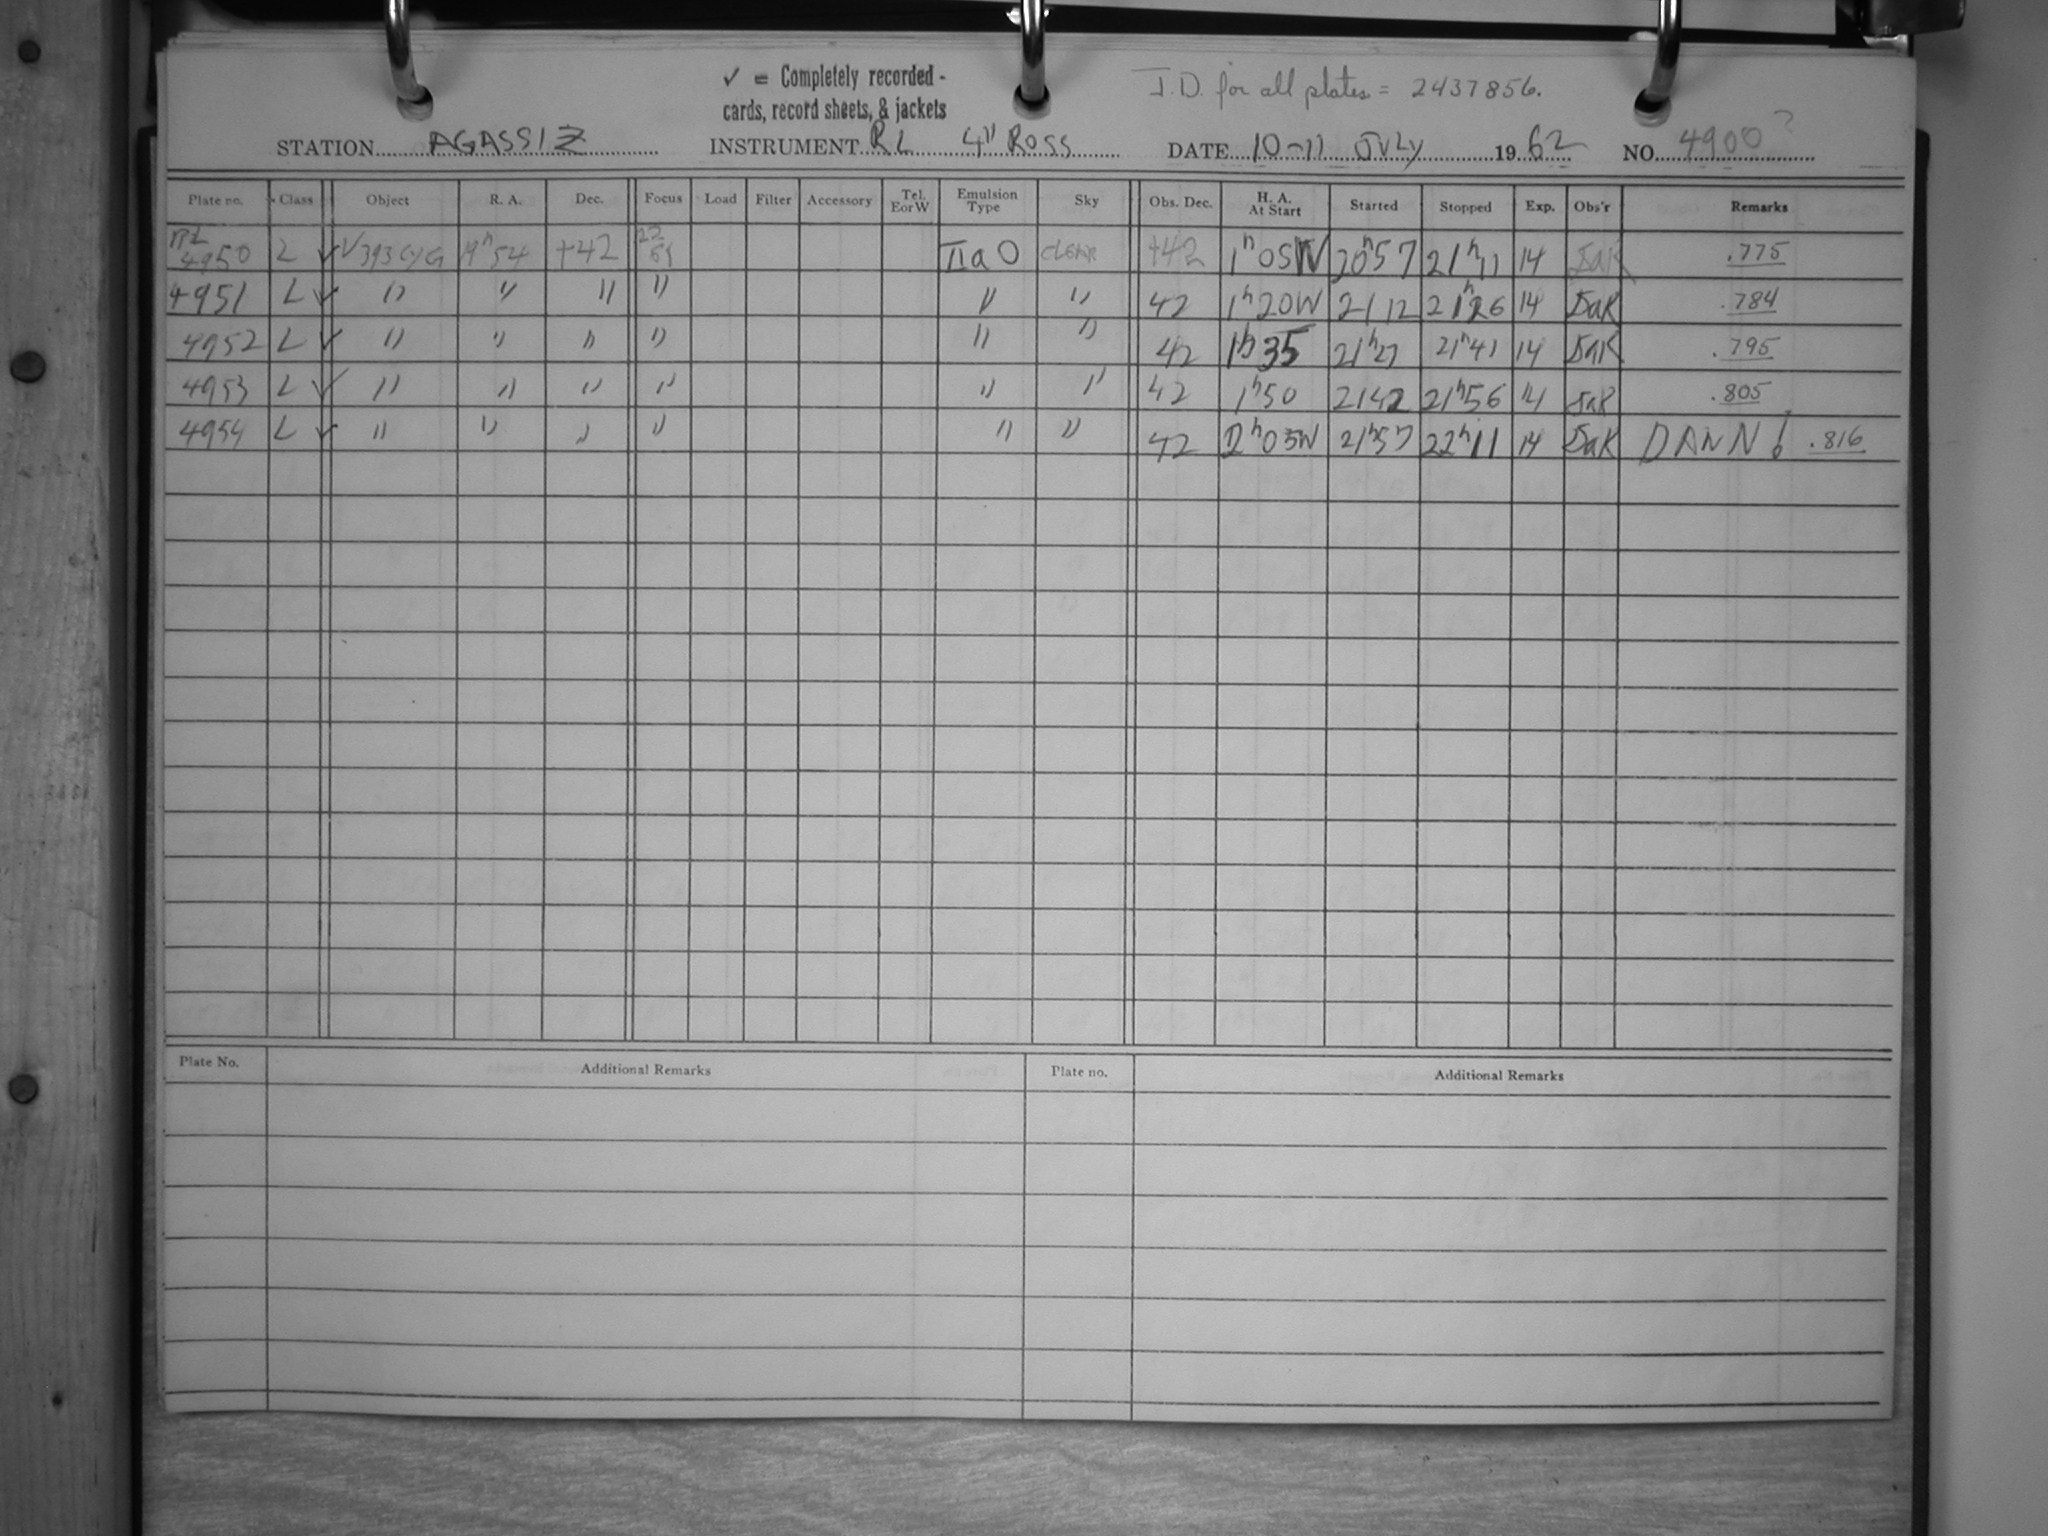 ✓ = Completely recorded -
cards, record sheets, & jackets
J.D. for all plates = 2437856.
STATION AGASSIZ INSTRUMENT RL 4" ROSS DATE 10-11 JULY 1962 NO. 4900?
Plate no. Class Object R. A. Dec. Focus Load Filter Accessory Tel. E or W Emulsion Type Sky Obs. Dec. H. A. At Start Started Stopped Exp. Obs'r Remarks
RL 4950 L ✓ V393 CYG 19h54 +42 IIaO CLEAR +42 1h05W 20h57 21h11 14 .775
4951 L ✓ " " " " " " 42 1h20W 2112 21h26 14 .784
4952 L ✓ " " " " " " 42 1h35 21h27 21h41 14 .795
4953 L ✓ " " " " " " 42 1h50 2142 21h56 14 .805
4954 L ✓ " " " " " " 42 2h05W 21h57 22h11 14 DAWN! .816
Plate No. Additional Remarks Plate no. Additional Remarks